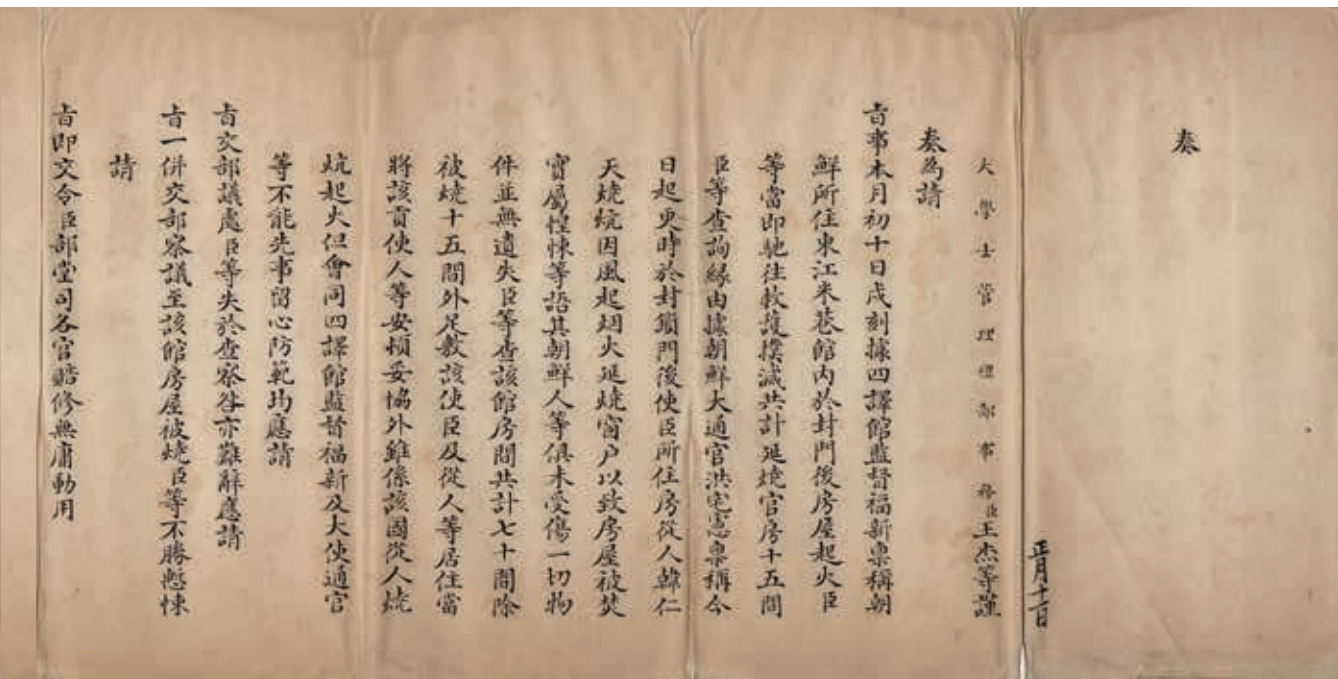 奏
正月十一日
大學士管理禮部事務臣王杰等謹
奏為請
旨事本月初十日戌刻據四譯館監督福新稟稱朝
鮮所住東江米巷館內於封門後房屋起火臣
等當即馳往救護撲滅共計延燒官房十五間
臣等查詢緣由據朝鮮大通官洪宅憲稟稱今
日起更時於封鎖門後使臣所住房從人韓仁
天燒炕因風起烟火延燒窗户以致房屋被焚
實屬惶悚等語其朝鮮人等俱未受傷一切物
件並無遺失臣等查該館房間共計七十間除
被燒十五間外足敷該使臣及從人等居住當
將該貢使人等安頓妥協外雖係該國從人燒
炕起火但會同四譯館監督福新及大使通官
等不能先事留心防範均應請
旨交部議處臣等失於查察咎亦難辭應請
旨一併交部察議至該館房屋被燒臣等不勝慙悚
請
旨即交令臣部堂司各官賠修無庸動用